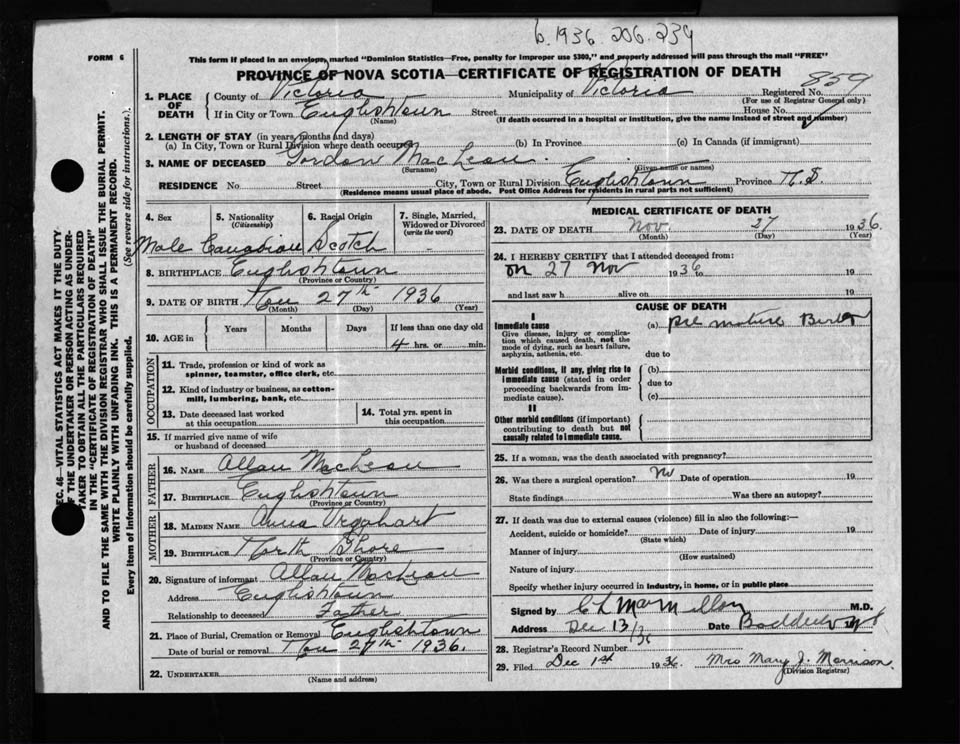 b. 1936. 206. 239
FORM 6
This form if placed in an envelope, marked "Dominion Statistics—Free, penalty for improper use $300," and properly addressed will pass through the mail "FREE"
PROVINCE OF NOVA SCOTIA—CERTIFICATE OF REGISTRATION OF DEATH
859
1. PLACE OF DEATH
County of Victoria Municipality of Victoria Registered No.
(For use of Registrar General only)
If in City or Town Englishtown Street House No.
(Name) (If death occurred in a hospital or institution, give the name instead of street and number)
2. LENGTH OF STAY (in years, months and days)
(a) In City, Town or Rural Division where death occurred (b) In Province (c) In Canada (if immigrant)
3. NAME OF DECEASED Gordon MacLean.
(Surname) (Given name or names)
RESIDENCE No Street City, Town or Rural Division Englishtown Province N.S.
(Residence means usual place of abode. Post Office Address for residents in rural parts not sufficient)
4. Sex 5. Nationality (Citizenship) 6. Racial Origin 7. Single, Married, Widowed or Divorced (write the word)
Male Canadian Scotch
8. BIRTHPLACE Englishtown
(Province or Country)
9. DATE OF BIRTH Nov 27th 1936
(Month) (Day) (Year)
10. AGE in Years Months Days If less than one day old
4 hrs. or min.
OCCUPATION
11. Trade, profession or kind of work as spinner, teamster, office clerk, etc.
12. Kind of industry or business, as cotton-mill, lumbering, bank, etc.
13. Date deceased last worked at this occupation
14. Total yrs. spent in this occupation
15. If married give name of wife or husband of deceased
FATHER
16. NAME Allan MacLean
17. BIRTHPLACE Englishtown
(Province or Country)
MOTHER
18. MAIDEN NAME Anna Urquhart
19. BIRTHPLACE North Shore
(Province or Country)
20. Signature of informant Allan MacLean
Address Englishtown
Relationship to deceased Father
21. Place of Burial, Cremation or Removal Englishtown
Date of burial or removal Nov 27th 1936.
22. UNDERTAKER
(Name and address)
MEDICAL CERTIFICATE OF DEATH
23. DATE OF DEATH Nov. 27 1936.
(Month) (Day) (Year)
24. I HEREBY CERTIFY that I attended deceased from:
on 27 Nov 1936 to 19
and last saw h alive on 19
CAUSE OF DEATH
I
Immediate cause
Give disease, injury or complication which caused death, not the mode of dying, such as heart failure, asphyxia, asthenia, etc.
(a) Pre mature Birth
due to
Morbid conditions, if any, giving rise to immediate cause (stated in order proceeding backwards from immediate cause).
(b)
due to
(c)
II
Other morbid conditions (if important) contributing to death but not causally related to immediate cause.
25. If a woman, was the death associated with pregnancy?
26. Was there a surgical operation? No Date of operation 19
State findings Was there an autopsy?
27. If death was due to external causes (violence) fill in also the following:—
Accident, suicide or homicide? Date of injury 19
(State which)
Manner of injury
(How sustained)
Nature of injury
Specify whether injury occurred in industry, in home, or in public place
Signed by C L MacMillan M.D.
Address Dec 13/36 Date Baddeck
28. Registrar's Record Number
29. Filed Dec 1st 1936. Mrs Mary J. Morrison
(Division Registrar)
SEC. 46—VITAL STATISTICS ACT MAKES IT THE DUTY
OF THE UNDERTAKER OR PERSON ACTING AS UNDER-
TAKER TO OBTAIN ALL THE PARTICULARS REQUIRED
IN THE "CERTIFICATE OF REGISTRATION OF DEATH"
AND TO FILE THE SAME WITH THE DIVISION REGISTRAR WHO SHALL ISSUE THE BURIAL PERMIT.
WRITE PLAINLY WITH UNFADING INK. THIS IS A PERMANENT RECORD.
Every item of information should be carefully supplied.
(See reverse side for instructions.)